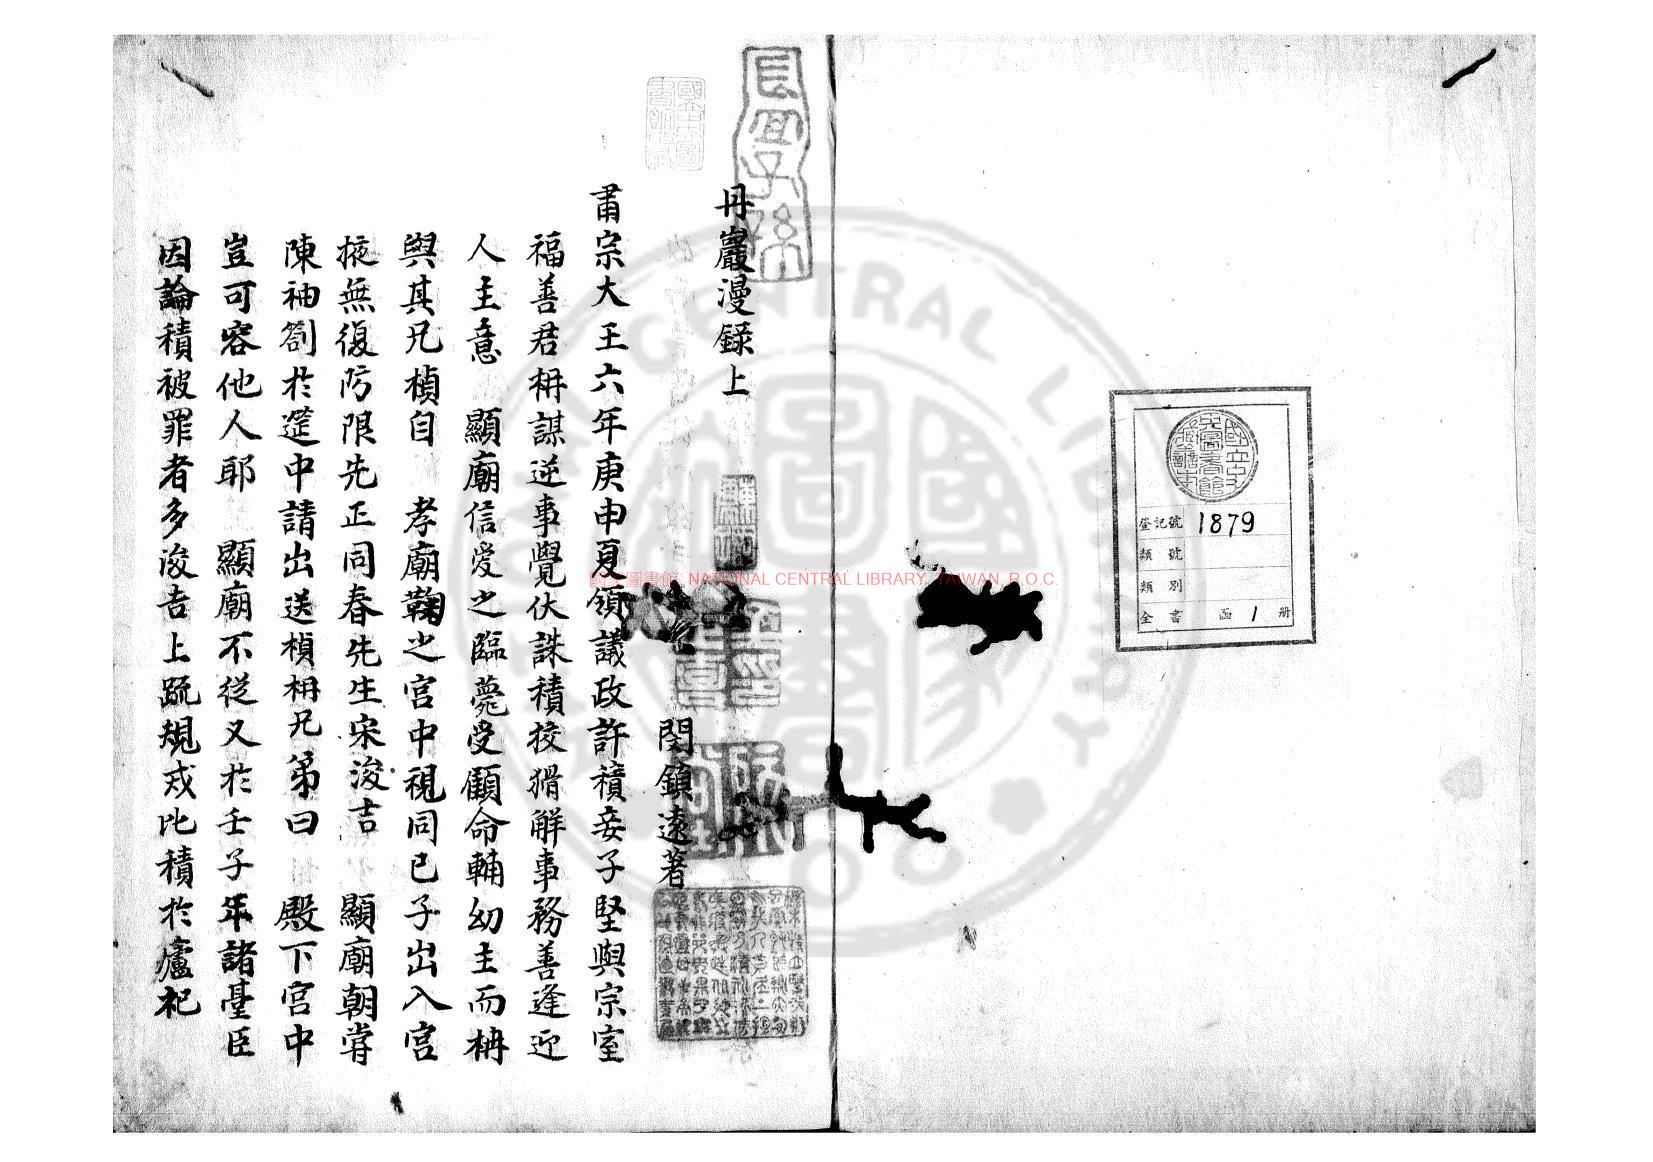 國立中央圖書館藏書
登記號 1879
類號
類別
全書 函 1 册
長宜子孫
丹巖漫錄上
閔鎮遠著
肅宗大王六年庚申夏領議政許積妾子堅與宗室
福善君枏謀逆事覺伏誅積狡猾解事務善逢迎
人主意 顯廟信愛之臨薨受顧命輔幼主而枏
與其兄楨自 孝廟鞠之宮中視同己子出入宮
掖無復防限先正同春先生宋浚吉 顯廟朝嘗
陳袖劄於筵中請出送楨枏兄弟曰 殿下宮中
豈可容他人耶 顯廟不從又於壬子年諸臺臣
因論積被罪者多浚吉上疏規戒比積於盧杞
國家圖書館 NATIONAL CENTRAL LIBRARY, TAIWAN, R.O.C.